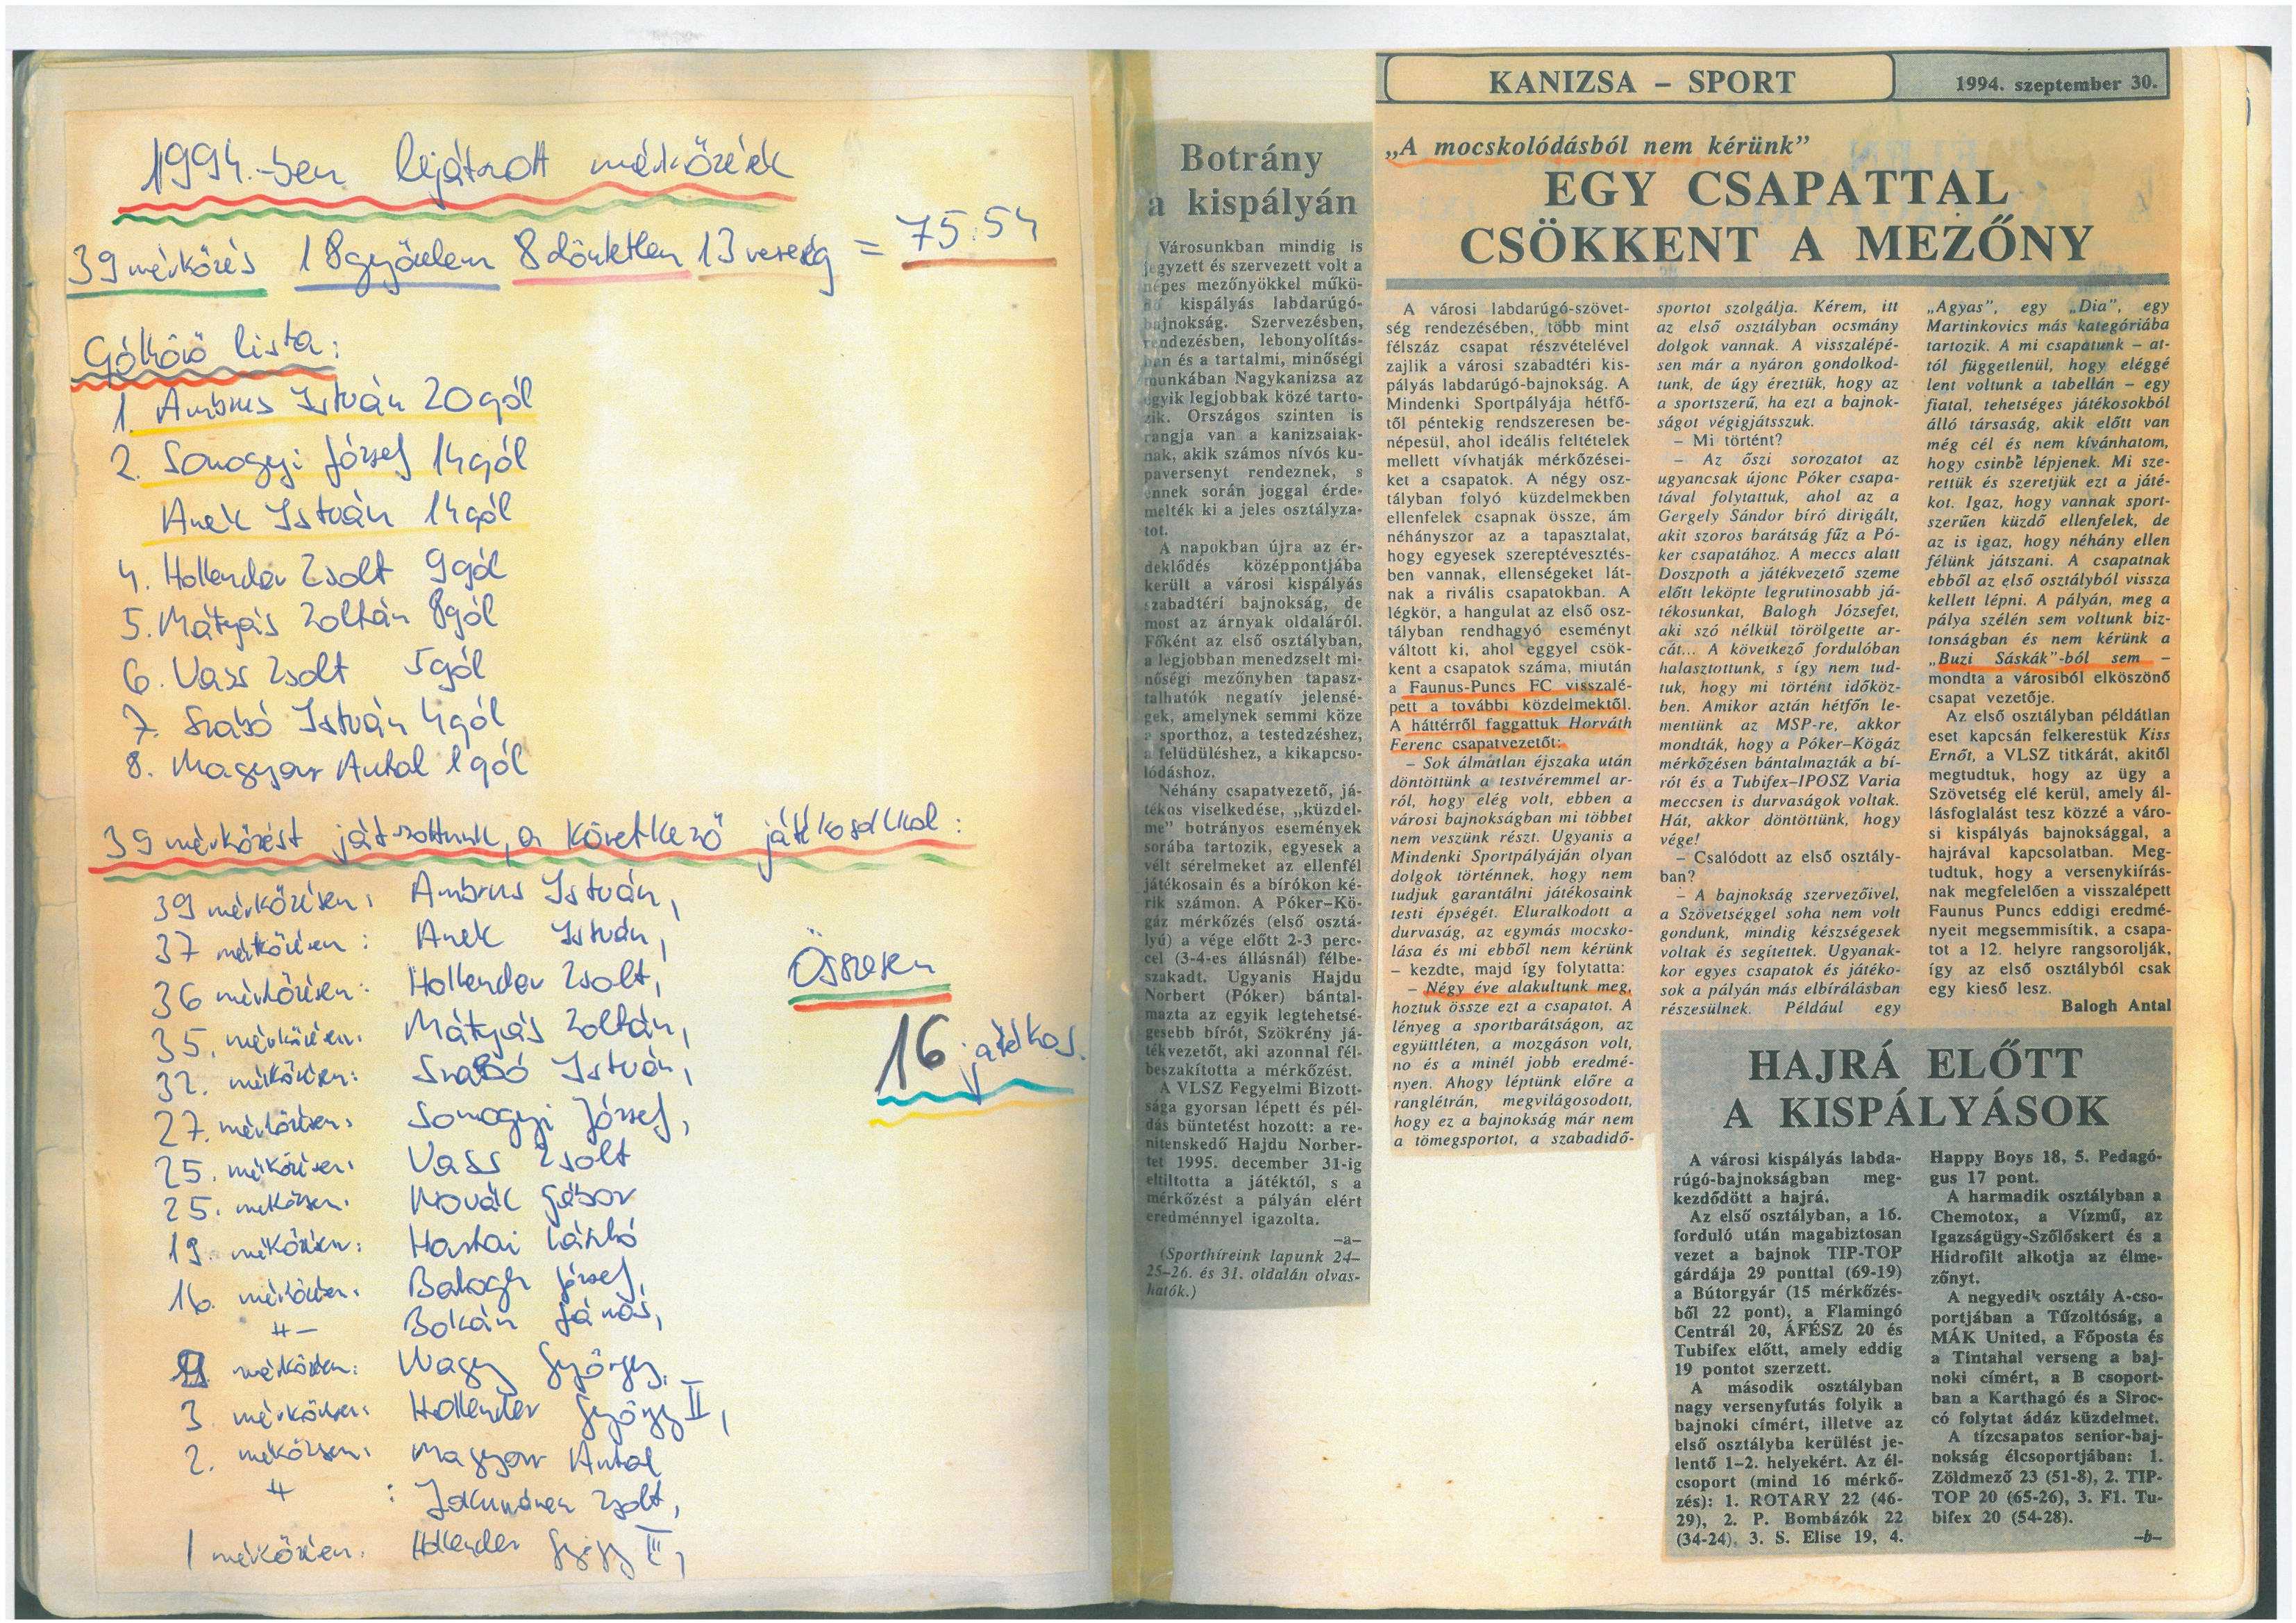 1994.-ben lejátszott mérkőzések
39 mérkőzés 18 győzelem 8 döntetlen 13 vereség = 75:54
Góllövő lista:
1. Ambrus István 20 gól
2. Somogyi József 14 gól
Anek István 14 gól
4. Hollender Zsolt 9 gól
5. Mátyás Zoltán 8 gól
6. Vass Zsolt 5 gól
7. Szabó István 4 gól
8. Magyar Antal 1 gól
39 mérkőzést játszottunk, a következő játékosokkal:
39 mérkőzésen: Ambrus István,
37 mérkőzésen: Anek István,
36 mérkőzésen: Hollender Zsolt,
35. mérkőzésen: Mátyás Zoltán,
32. mérkőzésen: Szabó István,
27. mérkőzésen: Somogyi József,
25. mérkőzésen: Vass Zsolt
25. mérkőzésen: Novák Gábor
19. mérkőzésen: Hartai László
16. mérkőzésen: Balogh József,
-"- Bokán János,
mérkőzésen: Nagy György,
3. mérkőzésen: Hollender György II,
2. mérkőzésen: Magyar Antal
-"- : Zsolt,
1 mérkőzésen: Hollender György III,
Összesen
16 játékos.
Botrány
a kispályán
Városunkban mindig is
jegyzett és szervezett volt a
népes mezőnyökkel műkö-
dő kispályás labdarúgó-
bajnokság. Szervezésben,
rendezésben, lebonyolítás-
ban és a tartalmi, minőségi
munkában Nagykanizsa az
egyik legjobbak közé tarto-
zik. Országos szinten is
rangja van a kanizsaiak-
nak, akik számos nívós ku-
paversenyt rendeznek, s
ennek során joggal érde-
melték ki a jeles osztályza-
tot.
A napokban újra az ér-
deklődés középpontjába
került a városi kispályás
szabadtéri bajnokság, de
most az árnyak oldaláról.
Főként az első osztályban,
a legjobban menedzselt mi-
nőségi mezőnyben tapasz-
talhatók negatív jelensé-
gek, amelynek semmi köze
a sporthoz, a testedzéshez,
a felüdüléshez, a kikapcso-
lódáshoz.
Néhány csapatvezető, já-
tékos viselkedése, „küzdel-
me” botrányos események
sorába tartozik, egyesek a
vélt sérelmeket az ellenfél
játékosain és a bírókon ké-
rik számon. A Póker–Kö-
gáz mérkőzés (első osztá-
lyú) a vége előtt 2-3 perc-
cel (3-4-es állásnál) félbe-
szakadt. Ugyanis Hajdu
Norbert (Póker) bántal-
mazta az egyik legtehetsé-
gesebb bírót, Szökrény já-
tékvezetőt, aki azonnal fél-
beszakította a mérkőzést.
A VLSZ Fegyelmi Bizott-
sága gyorsan lépett és pél-
dás büntetést hozott: a re-
nitenskedő Hajdu Norber-
tet 1995. december 31-ig
eltiltotta a játéktól, s a
mérkőzést a pályán elért
eredménnyel igazolta.
–a–
(Sporthíreink lapunk 24–
25–26. és 31. oldalán olvas-
hatók.)
KANIZSA – SPORT
1994. szeptember 30.
„A mocskolódásból nem kérünk”
EGY CSAPATTAL
CSÖKKENT A MEZŐNY
A városi labdarúgó-szövet-
ség rendezésében, több mint
félszáz csapat részvételével
zajlik a városi szabadtéri kis-
pályás labdarúgó-bajnokság. A
Mindenki Sportpályája hétfő-
től péntekig rendszeresen be-
népesül, ahol ideális feltételek
mellett vívhatják mérkőzései-
ket a csapatok. A négy osz-
tályban folyó küzdelmekben
ellenfelek csapnak össze, ám
néhányszor az a tapasztalat,
hogy egyesek szereptévesztés-
ben vannak, ellenségeket lát-
nak a rivális csapatokban. A
légkör, a hangulat az első osz-
tályban rendhagyó eseményt
váltott ki, ahol eggyel csök-
kent a csapatok száma, miután
a Faunus-Puncs FC visszalé-
pett a további közdelmektől.
A háttérről faggattuk Horváth
Ferenc csapatvezetőt:
– Sok álmatlan éjszaka után
döntöttünk a testvéremmel ar-
ról, hogy elég volt, ebben a
városi bajnokságban mi többet
nem veszünk részt. Ugyanis a
Mindenki Sportpályáján olyan
dolgok történnek, hogy nem
tudjuk garantálni játékosaink
testi épségét. Eluralkodott a
durvaság, az egymás mocsko-
lása és mi ebből nem kérünk
– kezdte, majd így folytatta:
– Négy éve alakultunk meg,
hoztuk össze ezt a csapatot. A
lényeg a sportbarátságon, az
együttléten, a mozgáson volt,
no és a minél jobb eredmé-
nyen. Ahogy léptünk előre a
ranglétrán, megvilágosodott,
hogy ez a bajnokság már nem
a tömegsportot, a szabadidő-
sportot szolgálja. Kérem, itt
az első osztályban ocsmány
dolgok vannak. A visszalépé-
sen már a nyáron gondolkod-
tunk, de úgy éreztük, hogy az
a sportszerű, ha ezt a bajnok-
ságot végigjátsszuk.
– Mi történt?
– Az őszi sorozatot az
ugyancsak újonc Póker csapa-
tával folytattuk, ahol az a
Gergely Sándor bíró dirigált,
akit szoros barátság fűz a Pó-
ker csapatához. A meccs alatt
Doszpoth a játékvezető szeme
előtt leköpte legrutinosabb já-
tékosunkat, Balogh Józsefet,
aki szó nélkül törölgette ar-
cát... A következő fordulóban
halasztottunk, s így nem tud-
tuk, hogy mi történt időköz-
ben. Amikor aztán hétfőn le-
mentünk az MSP-re, akkor
mondták, hogy a Póker–Kögáz
mérkőzésen bántalmazták a bí-
rót és a Tubifex–IPOSZ Varia
meccsen is durvaságok voltak.
Hát, akkor döntöttünk, hogy
vége!
– Csalódott az első osztály-
ban?
– A bajnokság szervezőivel,
a Szövetséggel soha nem volt
gondunk, mindig készségesek
voltak és segítettek. Ugyanak-
kor egyes csapatok és játéko-
sok a pályán más elbírálásban
részesülnek. Például egy
„Agyas”, egy „Dia”, egy
Martinkovics más kategóriába
tartozik. A mi csapatunk – at-
tól függetlenül, hogy eléggé
lent voltunk a tabellán – egy
fiatal, tehetséges játékosokból
álló társaság, akik előtt van
még cél és nem kívánhatom,
hogy csinbe lépjenek. Mi sze-
rettük és szeretjük ezt a játé-
kot. Igaz, hogy vannak sport-
szerűen küzdő ellenfelek, de
az is igaz, hogy néhány ellen
félünk játszani. A csapatnak
ebből az első osztályból vissza
kellett lépni. A pályán, meg a
pálya szélén sem voltunk biz-
tonságban és nem kérünk a
„Buzi Sáskák”-ból sem –
mondta a városiból elköszönő
csapat vezetője.
Az első osztályban példátlan
eset kapcsán felkerestük Kiss
Ernőt, a VLSZ titkárát, akitől
megtudtuk, hogy az ügy a
Szövetség elé kerül, amely ál-
lásfoglalást tesz közzé a váro-
si kispályás bajnoksággal, a
hajrával kapcsolatban. Meg-
tudtuk, hogy a versenykiírás-
nak megfelelően a visszalépett
Faunus Puncs eddigi eredmé-
nyeit megsemmisítik, a csapa-
tot a 12. helyre rangsorolják,
így az első osztályból csak
egy kieső lesz.
Balogh Antal
HAJRÁ ELŐTT
A KISPÁLYÁSOK
A városi kispályás labda-
rúgó-bajnokságban meg-
kezdődött a hajrá.
Az első osztályban, a 16.
forduló után magabiztosan
vezet a bajnok TIP-TOP
gárdája 29 ponttal (69-19)
a Bútorgyár (15 mérkőzés-
ből 22 pont), a Flamingó
Centrál 20, ÁFÉSZ 20 és
Tubifex előtt, amely eddig
19 pontot szerzett.
A második osztályban
nagy versenyfutás folyik a
bajnoki címért, illetve az
első osztályba kerülést je-
lentő 1–2. helyekért. Az él-
csoport (mind 16 mérkő-
zés): 1. ROTARY 22 (46-
29), 2. P. Bombázók 22
(34-24), 3. S. Elise 19, 4.
Happy Boys 18, 5. Pedagó-
gus 17 pont.
A harmadik osztályban a
Chemotox, a Vízmű, az
Igazságügy-Szőlőskert és a
Hidrofilt alkotja az élme-
zőnyt.
A negyedik osztály A-cso-
portjában a Tűzoltóság, a
MÁK United, a Főposta és
a Tintahal verseng a baj-
noki címért, a B csoport-
ban a Karthagó és a Siroc-
có folytat ádáz küzdelmet.
A tízcsapatos senior-baj-
nokság élcsoportjában: 1.
Zöldmező 23 (51-8), 2. TIP-
TOP 20 (65-26), 3. F1. Tu-
bifex 20 (54-28).
–b–